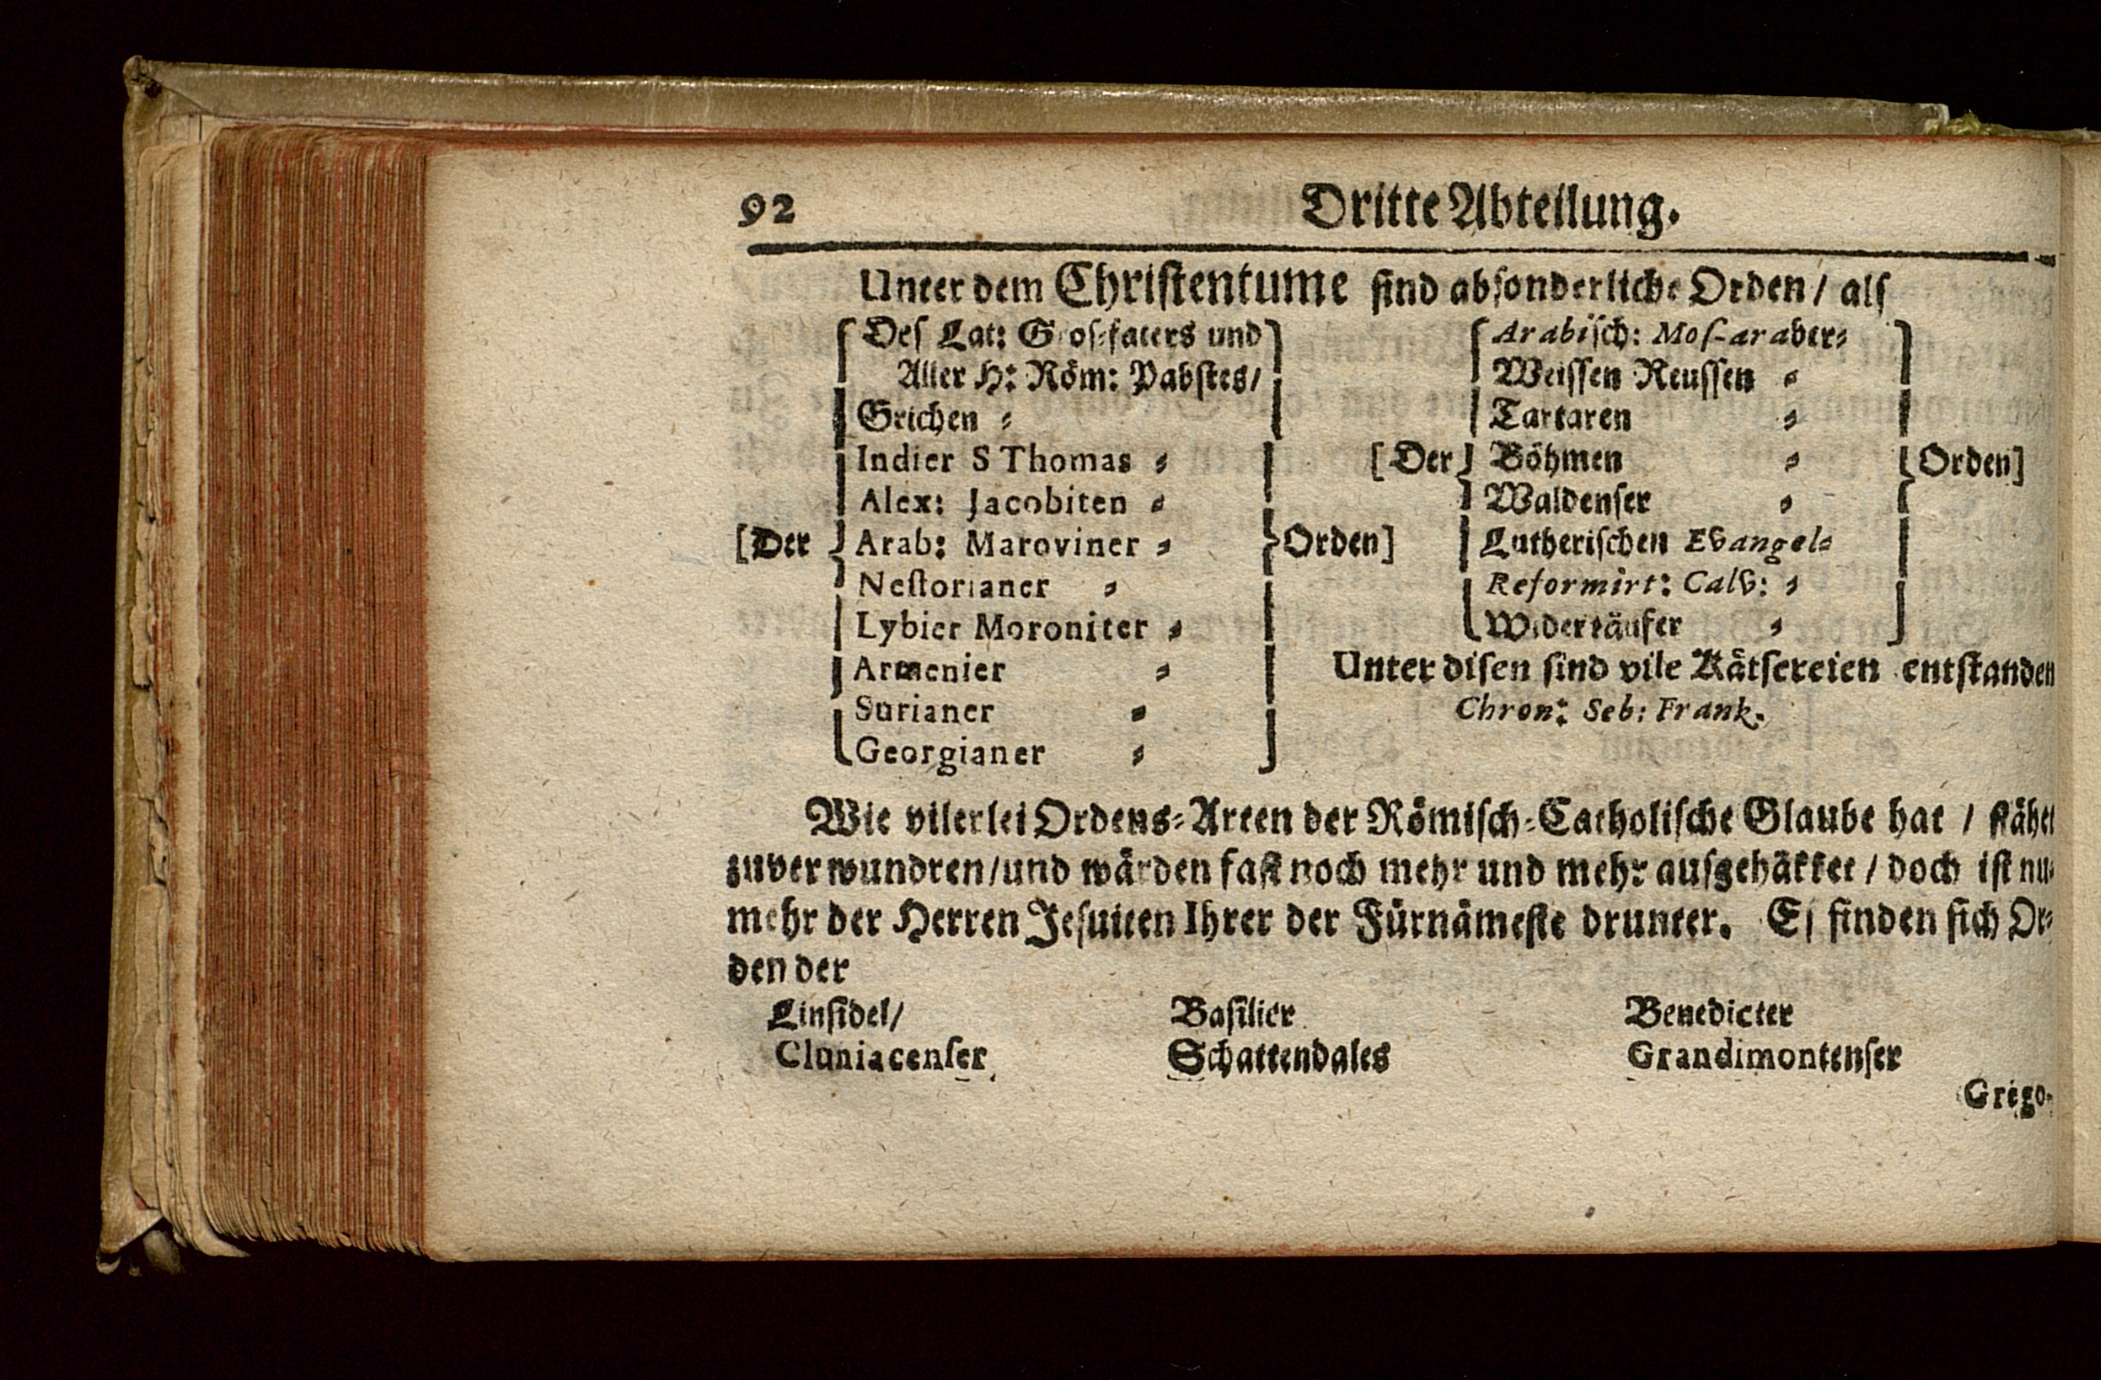 92 Dritte Abteilung.
Unter dem Christentume sind absonderliche Orden / alſ
Deſ Lat: Groſ-faters und
Aller H: Röm: Pabstes/
Grichen ⸗
Indier S Thomas ⸗
Alex: Jacobiten ⸗
[Der Arab: Maroviner ⸗ Orden]
Neſtorianer ⸗
Lybier Moroniter ⸗
Armenier ⸗
Surianer ⸗
Georgianer ⸗
Arabiſch: Moſ-araber⸗
Weiſſen Reuſſen ⸗
Tartaren ⸗
[Der Böhmen ⸗ Orden]
Waldenſer ⸗
Lutheriſchen Evangel⸗
Reformirt: Calv: ⸗
Widertäufer ⸗
Unter diſen ſind vile Kätſereien entſtanden
Chron: Seb: Frank.
Wie vilerlei Ordens⸗Arten der Römiſch⸗Catholiſche Glaube hat / ſtähet
zuverwundren/und wärden faſt noch mehr und mehr auſgehäkket / doch iſt nu⸗
mehr der Herren Jeſuiten Ihrer der Fürnämeſte drunter. Eſ finden ſich Or⸗
den der
Einſidel/ Baſilier Benedicter
Cluniacenſer Schattendales Grandimontenſer
Grego⸗